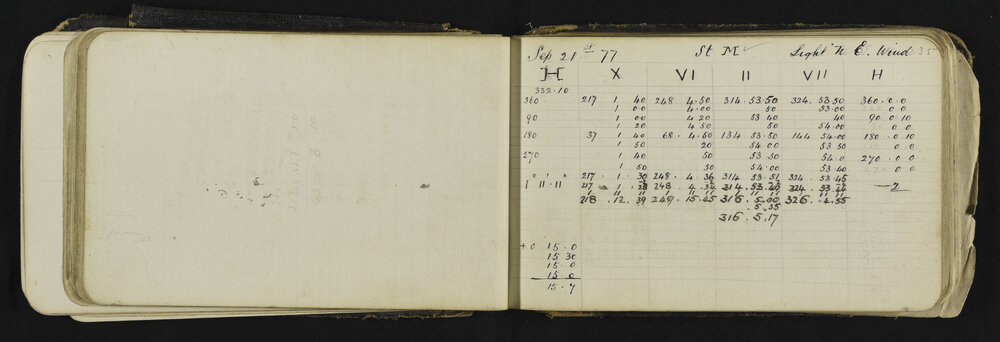 Sep 21st 77 St M Light N E. Wind 35
H X VI II VII H
332.10
360 217 1 40 248 4.50 314.53.50 324.53.50 360.0.0
1 00 4.00 50 53.00 0 0
90 1 00 4 20 53 40 40 90 0 10
1 20 4 50 50 54.00 0 0
180 37 1 40 68.4.50 134.53.50 144 54.00 180.0.10
1 50 20 54.00 53 50 0 0
270 1 40 50 53.50 54.0 270.0 0
1 50 50 54.00 53.50 0 0
217 1 30 248.4 36 314 53.51 324.53.45
1 11.11 217 1 28 248 4.34 314.53.49 324 53 44 —2
1 11 11 1 11 11 1 11 11 1 11 11
218.12.39 249.15.45 316.5.00 326.4.55
5.35
316.5.17
+0 15.0
15 30
15.0
15.0
15.7